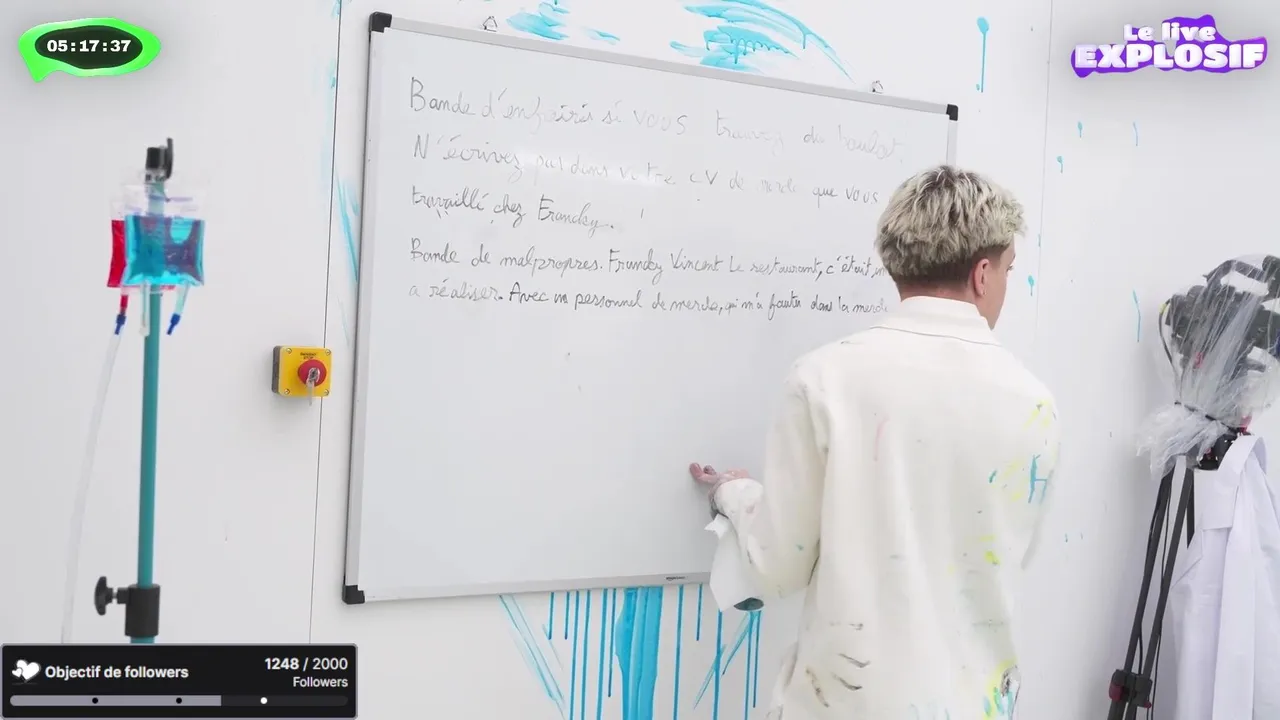 05:17:37
Le live
EXPLOSIF
Bande d'enfoirés si vous trouvez du boulot.
N'écrivez pas dans votre CV de merde que vous
travaillé chez Francky. !
Bande de malpropres. Francky Vincent Le restaurant, c'était
a réaliser. Avec un personnel de merde, qui m'a foutu dans la merde
Objectif de followers
1248 / 2000
Followers